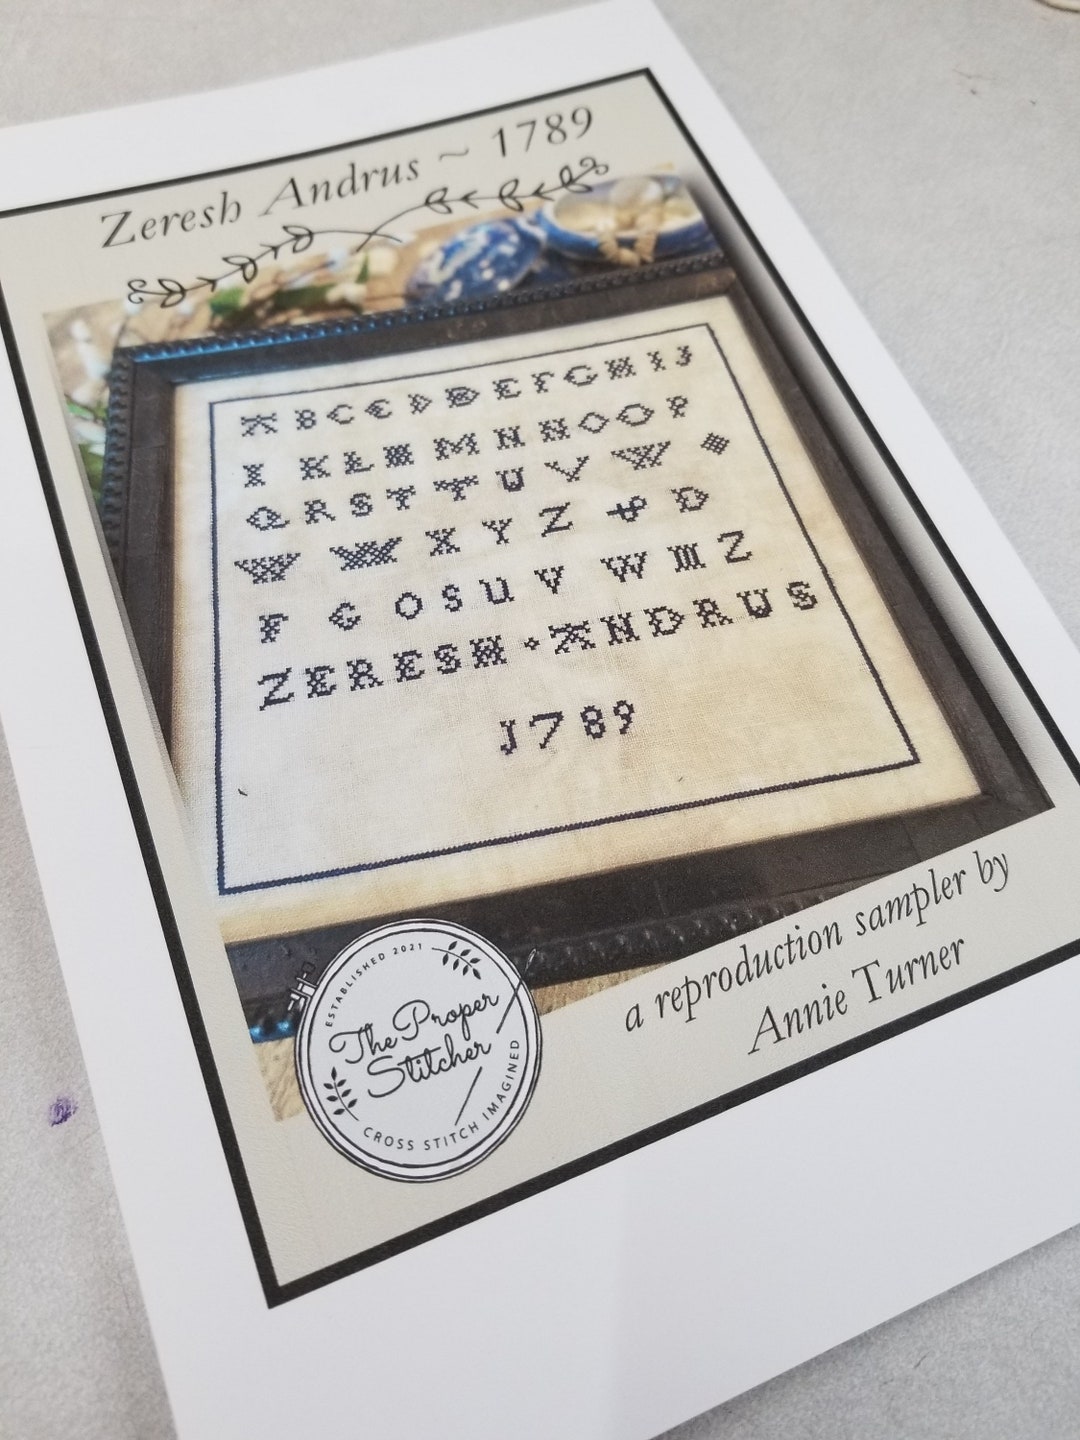 Zeresh Andrus ~ 1789
A B C C D D E F G H I J
I K L M M N N O O P
Q R S T T U V W
W W X Y Z & D
F G O S U V W M Z
ZERESH ANDRUS
1789
a reproduction sampler by
Annie Turner
ESTABLISHED 2021
The Proper
Stitcher
CROSS STITCH IMAGINED